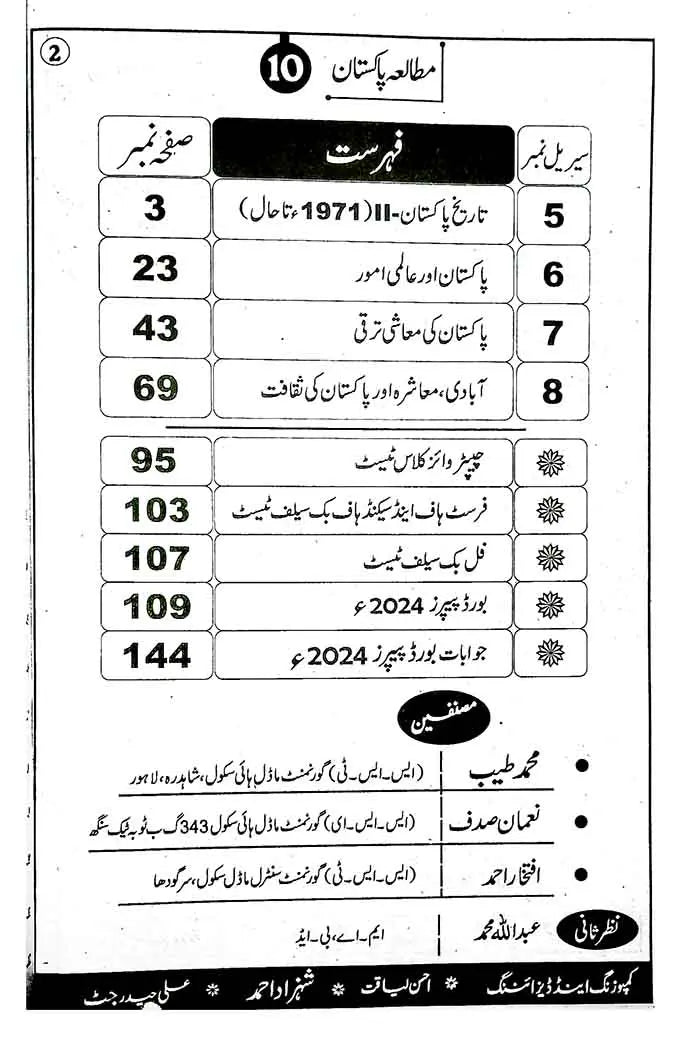 2
مطالعہ پاکستان 10
سیریل نمبر فہرست صفحہ نمبر
5 تاریخ پاکستان-II (1971ء تا حال) 3
6 پاکستان اور عالمی امور 23
7 پاکستان کی معاشی ترقی 43
8 آبادی، معاشرہ اور پاکستان کی ثقافت 69
چیپٹر وائز کلاس ٹیسٹ 95
فرسٹ ہاف اینڈ سیکنڈ ہاف بک سیلف ٹیسٹ 103
فل بک سیلف ٹیسٹ 107
بورڈ پیپرز 2024ء 109
جوابات بورڈ پیپرز 2024ء 144
مصنفین
• محمد طیب (ایس۔ایس۔ٹی) گورنمنٹ ماڈل ہائی سکول، شاہدرہ، لاہور
• نعمان صدف (ایس۔ایس۔ای) گورنمنٹ ماڈل ہائی سکول 343 گ ب ٹوبہ ٹیک سنگھ
• افتخار احمد (ایس۔ایس۔ٹی) گورنمنٹ سنٹرل ماڈل سکول، سرگودھا
نظر ثانی عبداللہ محمد ایم۔اے، بی۔ایڈ
کمپوزنگ اینڈ ڈیزائننگ * احسن لیاقت * شہزاد احمد * علی حیدر جٹ